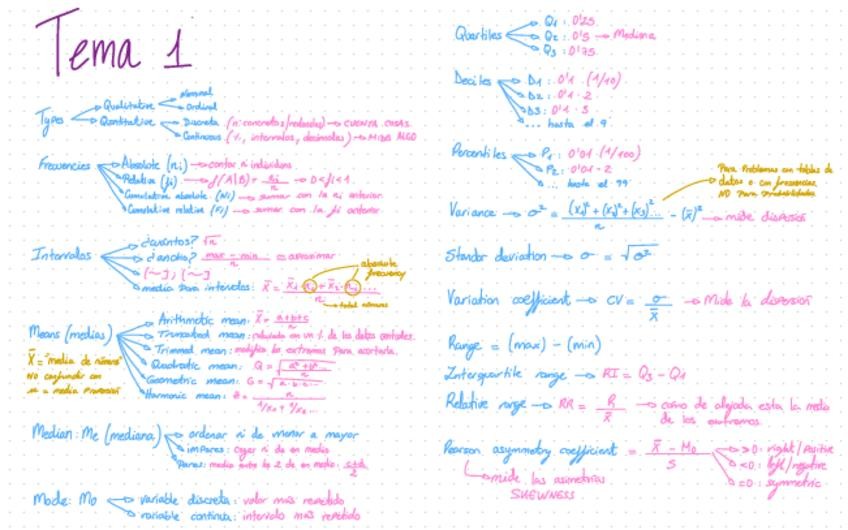 Tema 1
Types
Qualitative
Nominal
Ordinal
Quantitative
Discrete (nº concretos/redondos) → CUENTA COSAS
Continuous (1., intervalos, decimales) → MIDE ALGO
Frequencies
Absolute (ni) → contar nº individuos
Relative (fi) → f(A|B) = ni/n → 0<fi<1
Cumulative absolute (Ni) → sumar con la ni anterior
Cumulative relative (Fi) → sumar con la fi anterior
Intervalos
¿cuántos? √n
¿ancho? max - min / n = aproximar
[~) ; (~]
media para intervalos: x̄ = x̄1·n1 + x̄2·n2 ... / n
absolute frequency
total número
Means (medias)
Arithmetic mean: x̄ = a+b+c / n
Truncated mean: calculada en un % de los datos centrales.
Trimmed mean: modifica los extremos para acortarla.
Quadratic mean: Q = √(a²+b²... / n)
Geometric mean: G = √a·b·c...
Harmonic mean: = n / 1/x1 + 1/x2 ...
x̄ = "media de número"
NO confundir con
= media
Median: Me (mediana)
ordenar nº de menor a mayor
impares: coger nº de en medio
Pares: media entre los 2 de en medio:
Mode: Mo
variable discreta: valor más repetido
variable continua: intervalo más repetido
Quartiles
Q1: 0'25
Q2: 0'5 → Mediana
Q3: 0'75
Deciles
D1: 0'1 (1/10)
D2: 0'1·2
D3: 0'1·3
... hasta el 9
Percentiles
P1: 0'01 (1/100)
P2: 0'01·2
... hasta el 99
Para problemas con tablas de
datos o con frecuencias.
NO para probabilidades
Variance → σ² = (x1)² + (x2)² + (x3)² ... / n - (x̄)² → mide dispersión
Standar deviation → σ = √σ²
Variation coefficient → CV = σ / x̄ → Mide la dispersión
Range = (max) - (min)
Interquartile range → RI = Q3 - Q1
Relative range → RR = R / x̄ → como de alejada esta la media
de los extremos
Pearson asymmetry coefficient = x̄ - Mo / S
>0: right/positive
<0: left/negative
=0: symmetric
mide las asimetrias
SKEWNESS